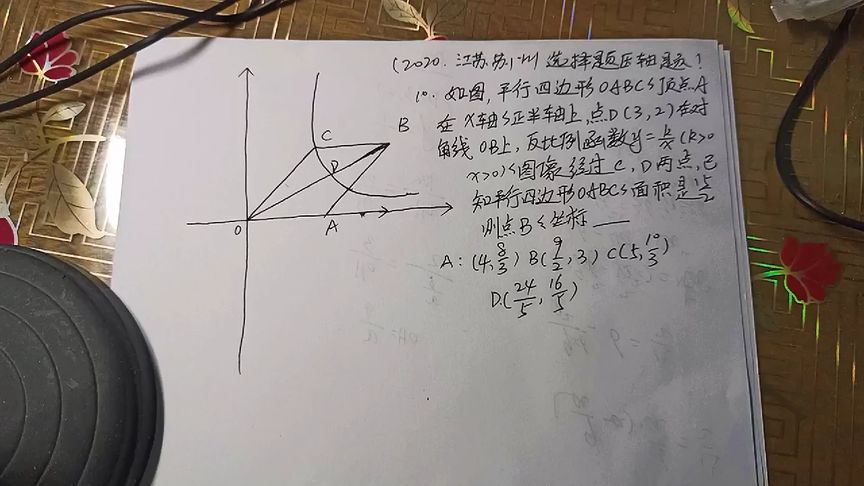 (2020.江苏苏州选择题压轴题)
10. 如图,平行四边形OABC的顶点A
在x轴的正半轴上,点D(3,2)在对
角线OB上,反比例函数y=k/x(k>0
x>0)的图像经过C,D两点,已
知平行四边形OABC的面积是15/2
则点B的坐标____
A:(4,8/3) B(9/2,3) C(5,10/3)
D.(24/5,16/5)
C
B
D
O
A